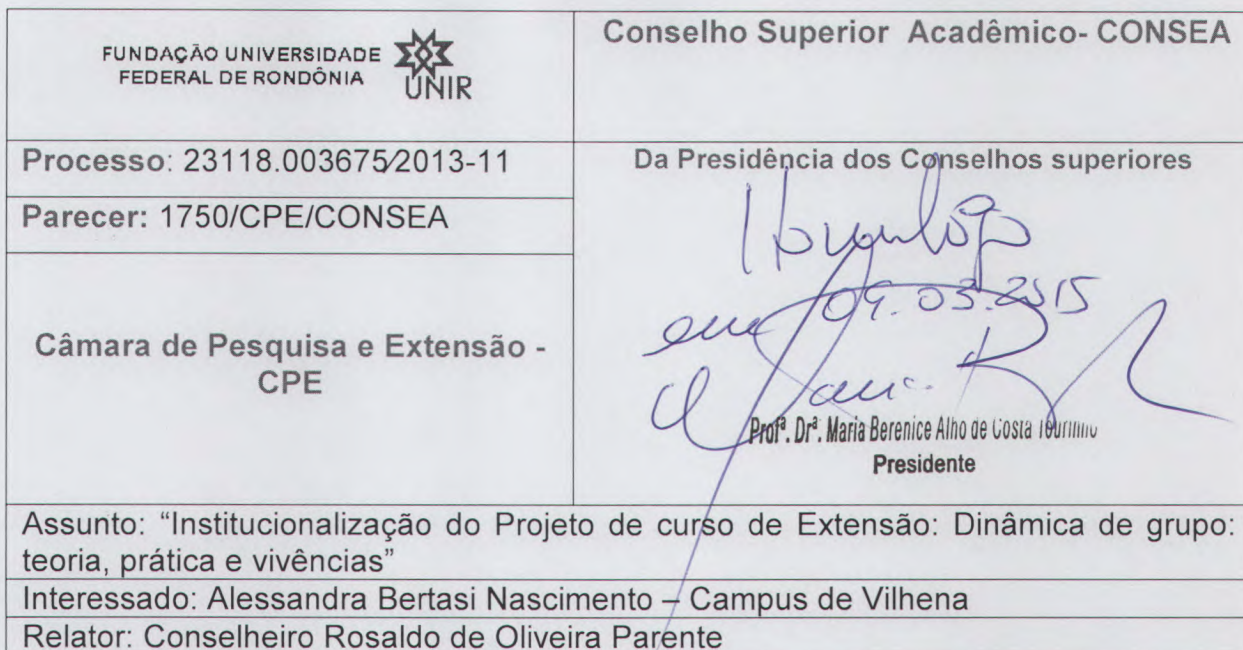 FUNDAÇÃO UNIVERSIDADE
FEDERAL DE RONDÔNIA
UNIR
Conselho Superior Acadêmico- CONSEA
Processo: 23118.003675/2013-11
Parecer: 1750/CPE/CONSEA
Câmara de Pesquisa e Extensão -
CPE
Da Presidência dos Conselhos superiores
Homologo
em 09.03.2015
Profª. Drª. Maria Berenice Alho de Costa Tourinho
Presidente
Assunto: “Institucionalização do Projeto de curso de Extensão: Dinâmica de grupo:
teoria, prática e vivências”
Interessado: Alessandra Bertasi Nascimento – Campus de Vilhena
Relator: Conselheiro Rosaldo de Oliveira Parente